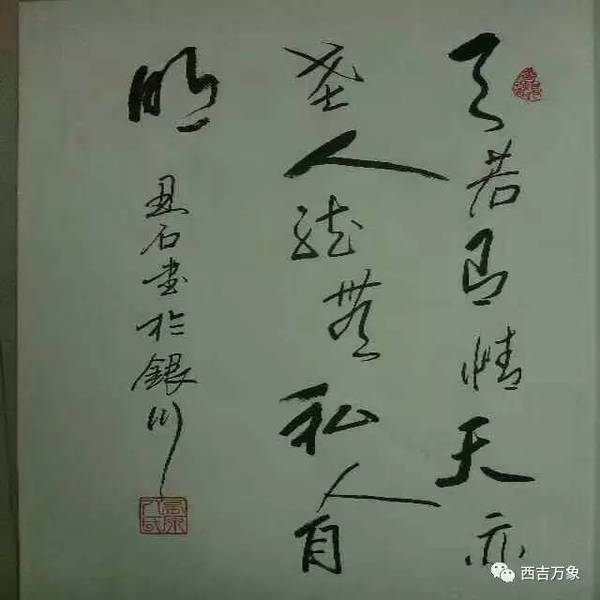 天若有情天亦
老人能無私人自
明
丑石書於銀川
西吉万象